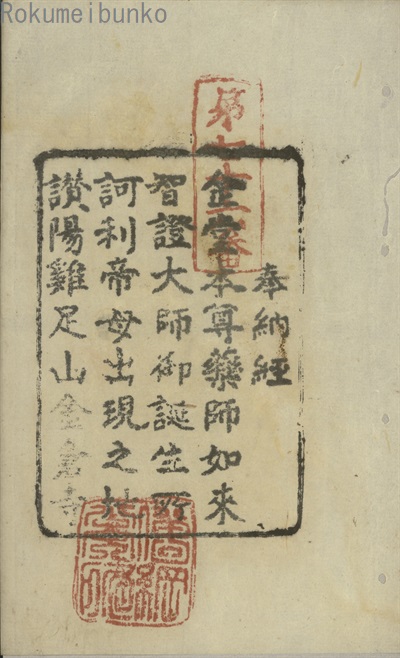 Rokumeibunko
第七十六番
奉納経
金堂本尊薬師如来
智證大師御誕生所
訶利帝母出現之地
讃陽雞足山金倉寺